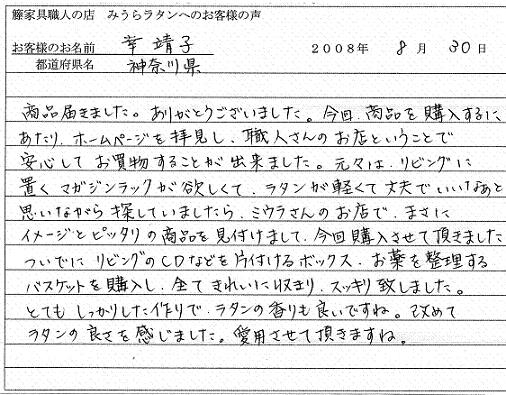 籐家具職人の店　みうらラタンへのお客様の声
お客様のお名前　幸 靖子　2008年 8月 30日
都道府県名　神奈川県
商品届きました。ありがとうございました。今回、商品を購入するに
あたり、ホームページを拝見し、職人さんのお店ということで
安心して お買物することが出来ました。元々は、リビングに
置く マガジンラックが欲しくて、ラタンが軽くて丈夫でいいなあと
思いながら 探していましたら、ミウラさんのお店で、まさに
イメージとピッタリの商品を見付けまして、今回購入させて頂きました
ついでに リビングのCDなどを片付けるボックス、お薬を整理する
バスケットを購入し、全て きれいに収まり、スッキリ致しました。
とても しっかりした作りで、ラタンの香りも良いですね。改めて
ラタンの良さを感じました。愛用させて頂きますね。